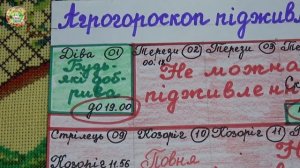 Агрогороскоп піджив
Діва (01) Терези (02) Терези (03)
Будь-
які доб-
рива
до 19.00
Не можна
підживленн
Стрілець (09) Козоріг (10) Козоріг (11)
Козоріг 11.56 Повня